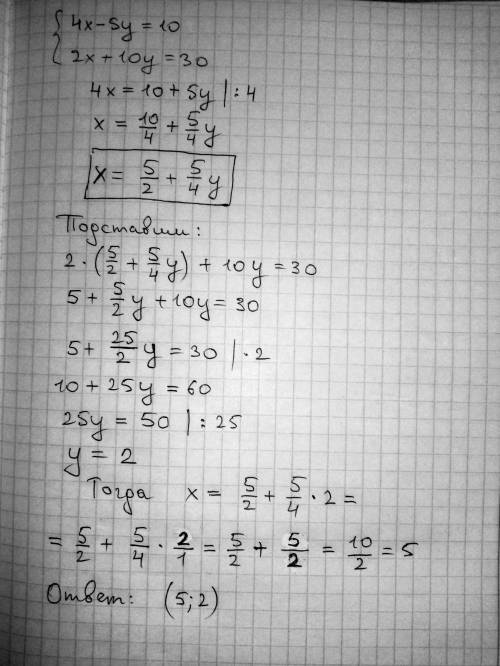 { 4x-5y=10
2x+10y=30
4x=10+5y|:4
x = 10/4 + 5/4 y
x = 5/2 + 5/4 y
Подставим:
2·(5/2 + 5/4 y) + 10y = 30
5 + 5/2 y + 10y = 30
5 + 25/2 y = 30 | · 2
10 + 25y = 60
25y = 50 | : 25
y = 2
Тогда x = 5/2 + 5/4 · 2 =
= 5/2 + 5/4 · 2/1 = 5/2 + 5/2 = 10/2 = 5
Ответ: (5; 2)